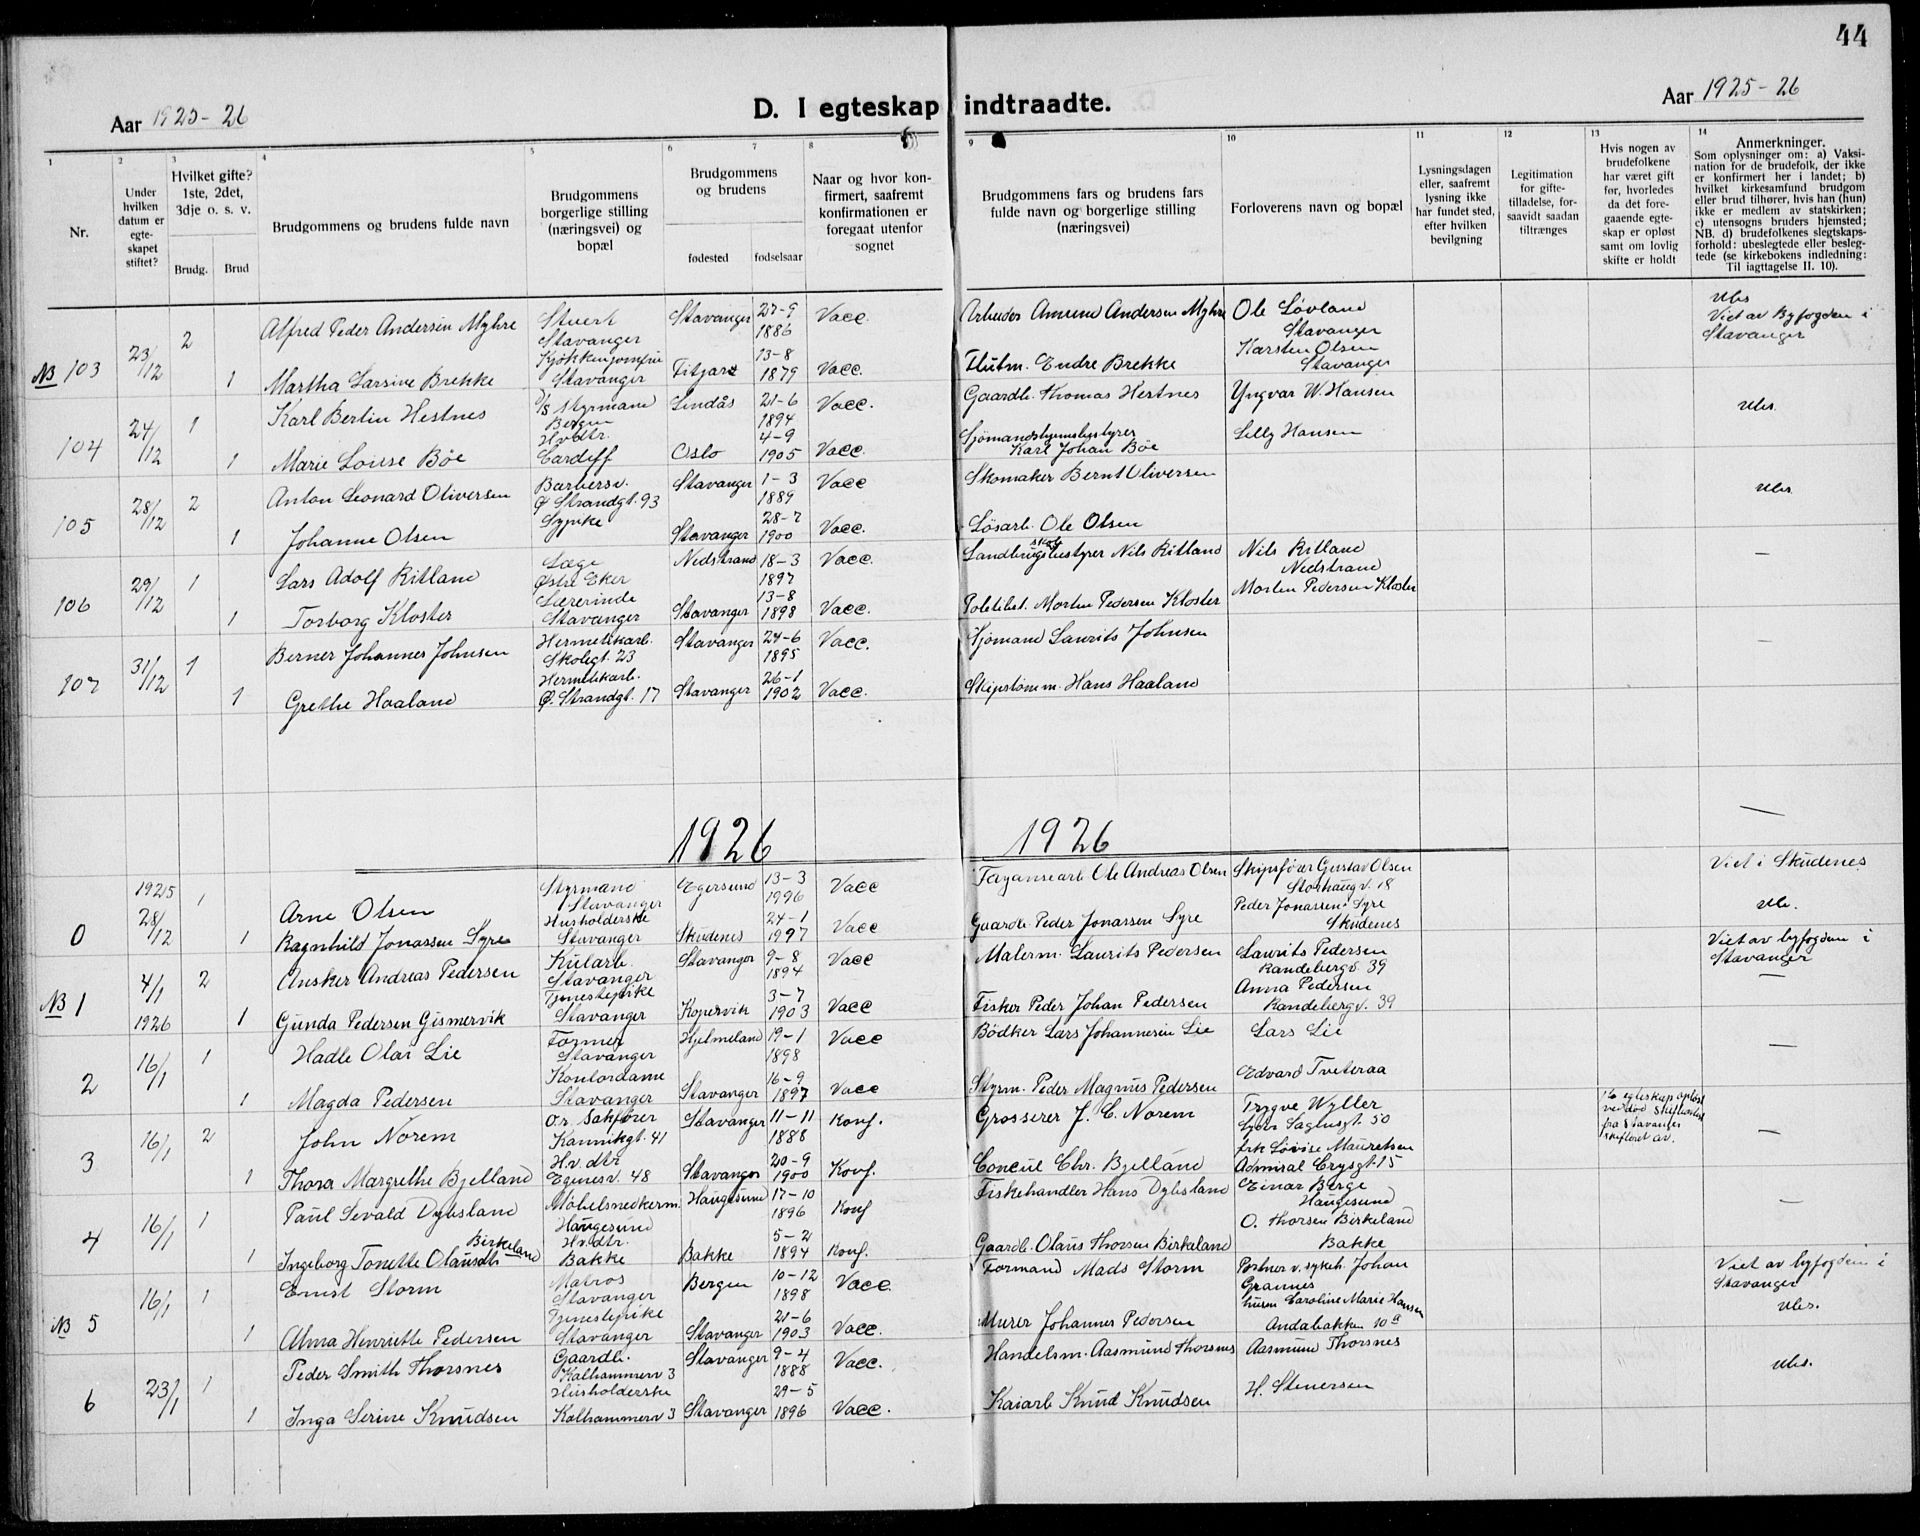 44
Aar 1925-26
D. I egteskap indtraadte.
Aar 1925-26
1
Nr.
2
Under hvilken datum er egte-skapet stiftet?
3
Hvilket gifte? 1ste, 2det, 3dje o. s. v.
Brudg.
Brud
4
Brudgommens og brudens fulde navn
5
Brudgommens borgerlige stilling (næringsvei) og bopæl
6
7
Brudgommens og brudens
fødested
fødselsaar
8
Naar og hvor kon-firmert, saafremt konfirmationen er foregaat utenfor sognet
9
Brudgommens fars og brudens fars fulde navn og borgerlige stilling (næringsvei)
10
Forloverens navn og bopæl
11
Lysningsdagen eller, saafremt lysning ikke har fundet sted, efter hvilken bevilgning
12
Legitimation for gifte-tilladelse, for-saavidt saadan tiltrænges
13
Hvis nogen av brudefolkene har været gift før, hvorledes da det fore-gaaende egte-skap er opløst samt om lovlig skifte er holdt
14
Anmerkninger.
Som oplysninger om: a) Vaksi-nation for de brudefolk, der ikke er konfirmert her i landet; b) hvilket kirkesamfund brudgom eller brud tilhører, hvis han (hun) ikke er medlem av statskirken; c) utensogns bruders hjemsted; NB. d) brudefolkenes slegtskaps-forhold: ubeslegtede eller besleg-tede (se kirkebokens indledning: Til iagttagelse II. 10).
NB 103 23/12 2 Alfred Peder Andersen Myhre Stuert Stavanger Stavanger 27-9 1886 Vacc. Arbeider Amund Andersen Myhre Ole Løvland Stavanger Ubs Viet av Byfogden i Stavanger
1 Martha Larsine Brekke Kjøkkenjomfru Stavanger Fitjar 13-8 1879 Vacc. Endre Brekke Karsten Olsen Stavanger
104 24/12 1 Karl Bertin Hestnes D/S Styrmand Bergen Lindås 21-6 1894 Vacc. Gaardb. Thomas Hestnes Yngvar W. Hansen Ubs.
1 Marie Louise Bøe Hvdtr. Cardiff Oslo 4-9 1905 Vacc. Sjømandshjemsbestyrer Karl Johan Bøe Lilly Hansen
105 28/12 2 Anton Leonard Oliversen Barbersv. Ø Strandgt. 93 Stavanger 1-3 1889 Vacc Skomaker Bernt Oliversen Ubs.
1 Johanne Olsen Sypike Stavanger 28-7 1900 Vacc. Løsarb. Ole Olsen
106 29/12 1 Lars Adolf Ritland Læge Østre Eker Nedstrand 18-3 1897 Vacc. Landbrugsskolebestyrer Nils Ritland Nils Ritland Nedstrand —
1 Torborg Kloster Lærerinde Stavanger Stavanger 13-8 1898 Vacc. Politibt. Morten Pedersen Kloster Morten Pedersen Kloster
107 31/12 1 Berner Johannes Johnsen Hermetikarb. Skolegt. 23 Stavanger 24-6 1895 Vacc. Sjømand Laurits Johnsen —
1 Grethe Haaland Hermetikarb. Ø. Strandgt. 17 Stavanger 26-1 1902 Vacc. Skipstømm. Hans Haaland
—
1926
1926
0 1925 28/12 1 Arne Olsen Styrmand Stavanger Egersund 13-3 1996 Vacc Fayansearb Ole Andreas Olsen Skipsfører Gustav Olsen Storhaugv. 18 Viet i Skudenes
1 Ragnhild Jonassen Syre Husholderske Stavanger Skudenes 24-1 1997 Vacc Gaardb. Peder Jonassen Syre Peder Jonassen Syre Skudenes Ub.
NB 1 4/1 1926 2 Ansker Andreas Pedersen Kularb. Stavanger Stavanger 9-8 1894 Vacc Malerm. Laurits Pedersen Laurits Pedersen Randebergv. 39 Viet av byfogden i Stavanger —
1 Gunda Pedersen Gismervik Tjenestepike Stavanger Kopervik 3-7 1903 Vacc Fisker Peder Johan Pedersen Anna Pedersen Randebergv. 39
2 16/1 1 Hadle Olai Lie Former Stavanger Hjelmeland 19-1 1898 Vacc Bødker Lars Johannesen Lie Lars Lie —
1 Magda Pedersen Kontordame Stavanger Stavanger 16-9 1897 Vacc Styrm. Peder Magnus Pedersen Edvard Tveteraa
3 16/1 2 John Norem O.r. Sakfører Kannikgt. 41 Stavanger 11-11 1888 Konf. Grosserer J. C. Norem Trygve Wyller 50 1ste egteskap opløst ved død fra Stavanger skifteret av. —
1 Thora Margrethe Bjelland H.v.dtr Egenesv. 48 Stavanger 20-9 1900 Konf. Concul Chr. Bjelland frk Lovise Mauretsen Admiral Crysgt. 15
4 16/1 1 Paul Sevald Dybsland Møbelsnedkerm. Haugesund Haugesund 17-10 1896 Konf Fiskehandler Hans Dybsland Einar Berge Haugesund —
1 Ingeborg Tonette Olausdtr Birkeland Hvdtr. Bakke Bakke 5-2 1894 Konf. Gaardb. Olaus Thorsen Birkeland O. Thorsen Birkeland Bakke
NB 5 16/1 1 Ernst Storm Matros Stavanger Bergen 10-12 1898 Vacc. Formand Mads Storm Portner v. sykeh. Johan Grannes Viet av byfogden i Stavanger Ubs.
1 Alma Henriette Pedersen Tjenestepike Stavanger Stavanger 21-6 1903 Vacc. Murer Johannes Pedersen husm Caroline Marie Hansen Andabakken 10a
6 23/1 1 Peder Smith Thorsnes Gaardb. Kalhammerv 3 Stavanger 9-4 1888 Vacc. Handelsm. Aasmund Thorsnes Aasmund Thorsnes Ubs.
1 Inga Serine Knudsen Husholderske Kalhammerv 3 Stavanger 29-5 1896 Vacc. Kaiarb Knud Knudsen H. Stenersen